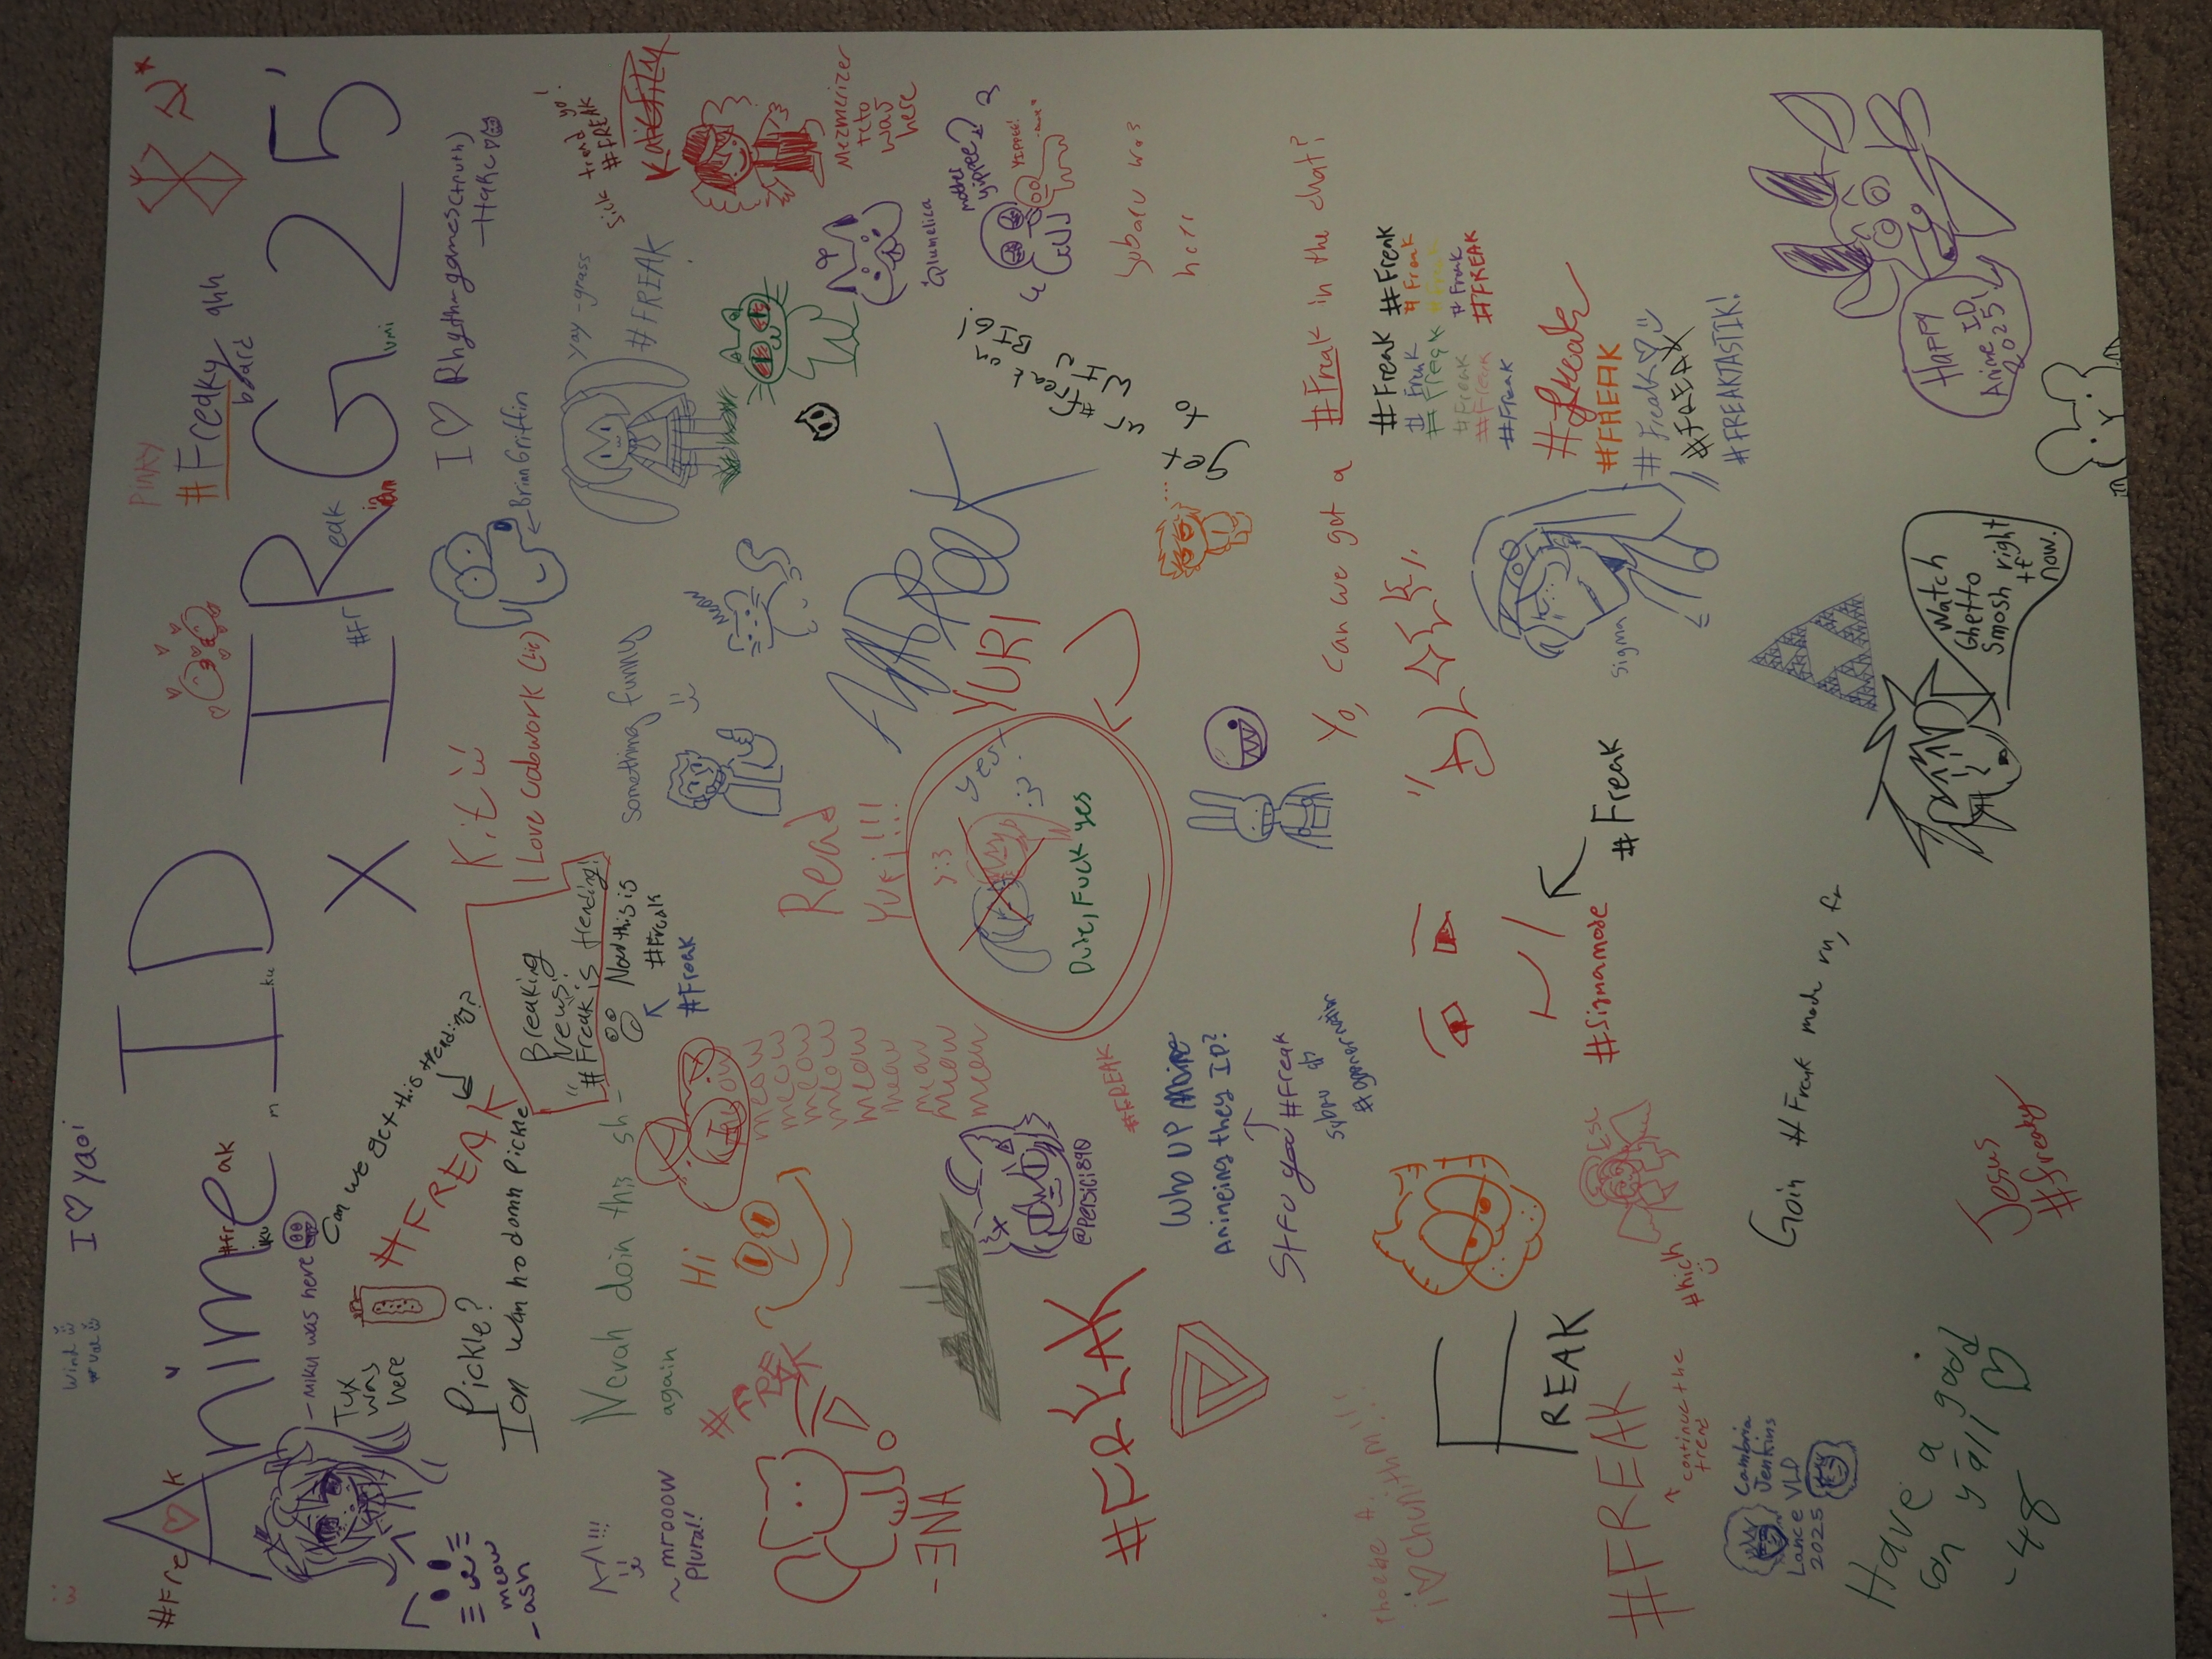 Wind
I ♡ yaoi
Anime ID
x IRG 25'
#Fre
K
#Fr
eak
iku
m
ku
#Fr
eak
PINKY
#Freaky
board
ahh
- MIKU was here
Tux
was
here
Can we get this trending?
#FREAK
Pickle?
Ion wan no damn Pickle
meow
- ash
Kit
I Love cabwork (lie)
I ♡ Rhythm games (truth)
- Hake
← BrianGriffin
Breaking
news!
"#Freak is trending!
Now this is
#Freak
#Freak
Nevah doin this sh-
again
something funny
yay - grass
#FREAK
sick trend yo!
#FREAK
Mezmerizer
teto
was
here
meow
~ mrooow
plural!
#FREAK
Hi
meow
meow
meow
meow
meow
meow
meow
mew
meow
meow
Read
Yuri!!!
YURI
yes!
:3
:3
Dude, Fuck yes
@lumelica
mother
yippee?
YIPPEE!
Subaru was
here
get
to
ur #freak on
WIT
BIG!
- ENA
#FREAK
@Persici890
#FREAK
Who UP Anime
Animeing they ID?
Stfu you #Freak
Yo, can we get a #Freak in the chat?
#Freak #Freak
#Freak #Freak
#Freak #Freak
#Freak #Freak
#Freak #FREAK
#Freak
#freak
#FREAK
#Freak♡
#FREAK
#FREAKTASTIK!
Phoebe A.
i ♡ Chunithm!!
FREAK
#Sigmamode
#Freak
sigma
#FREAK
continue the
trend
Cambria
Jenkins
Lance VLD
2025
Goin #Freak mode rn, fr
Watch
Ghetto
Smosh right
now.
Happy
Anime ID
2025!
Have a good
on y'all ♡
- 48
Jesus
#freaky